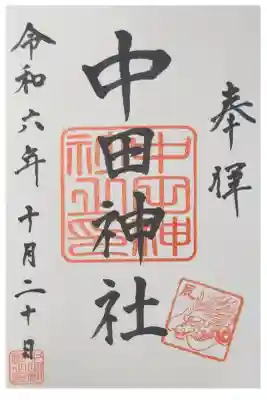 奉拝
中田神社
中田神
社之印
辰
令和六年 十月二十日